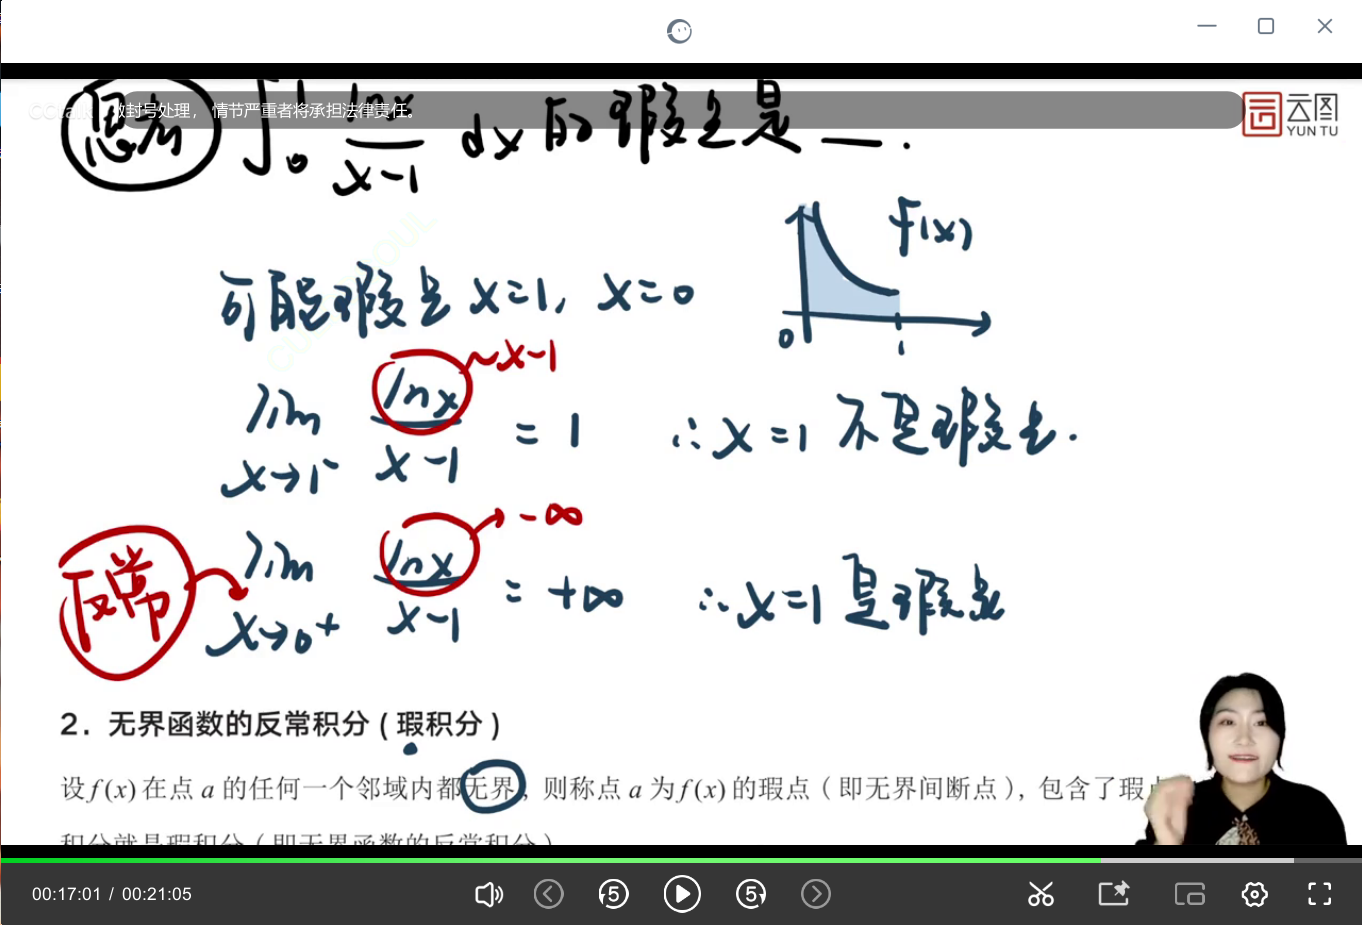 致封号处理， 情节严重者将承担法律责任。
云图
YUN TU
思考 ∫₀¹ lnx/(x-1) dx 的瑕点是 __.
f(x)
0 1
可能瑕点 x=1, x=0
~x-1
lim x→1⁻ lnx/(x-1) = 1 ∴x=1 不是瑕点.
→-∞
反常
lim x→0⁺ lnx/(x-1) = +∞ ∴x=1 是瑕点
2. 无界函数的反常积分 ( 瑕积分 )
设 f(x) 在点 a 的任何一个邻域内都无界, 则称点 a 为 f(x) 的瑕点 ( 即无界间断点 ), 包含了瑕点
积分就是瑕积分 ( 即无界函数的反常积分 )
00:17:01 / 00:21:05
5 5